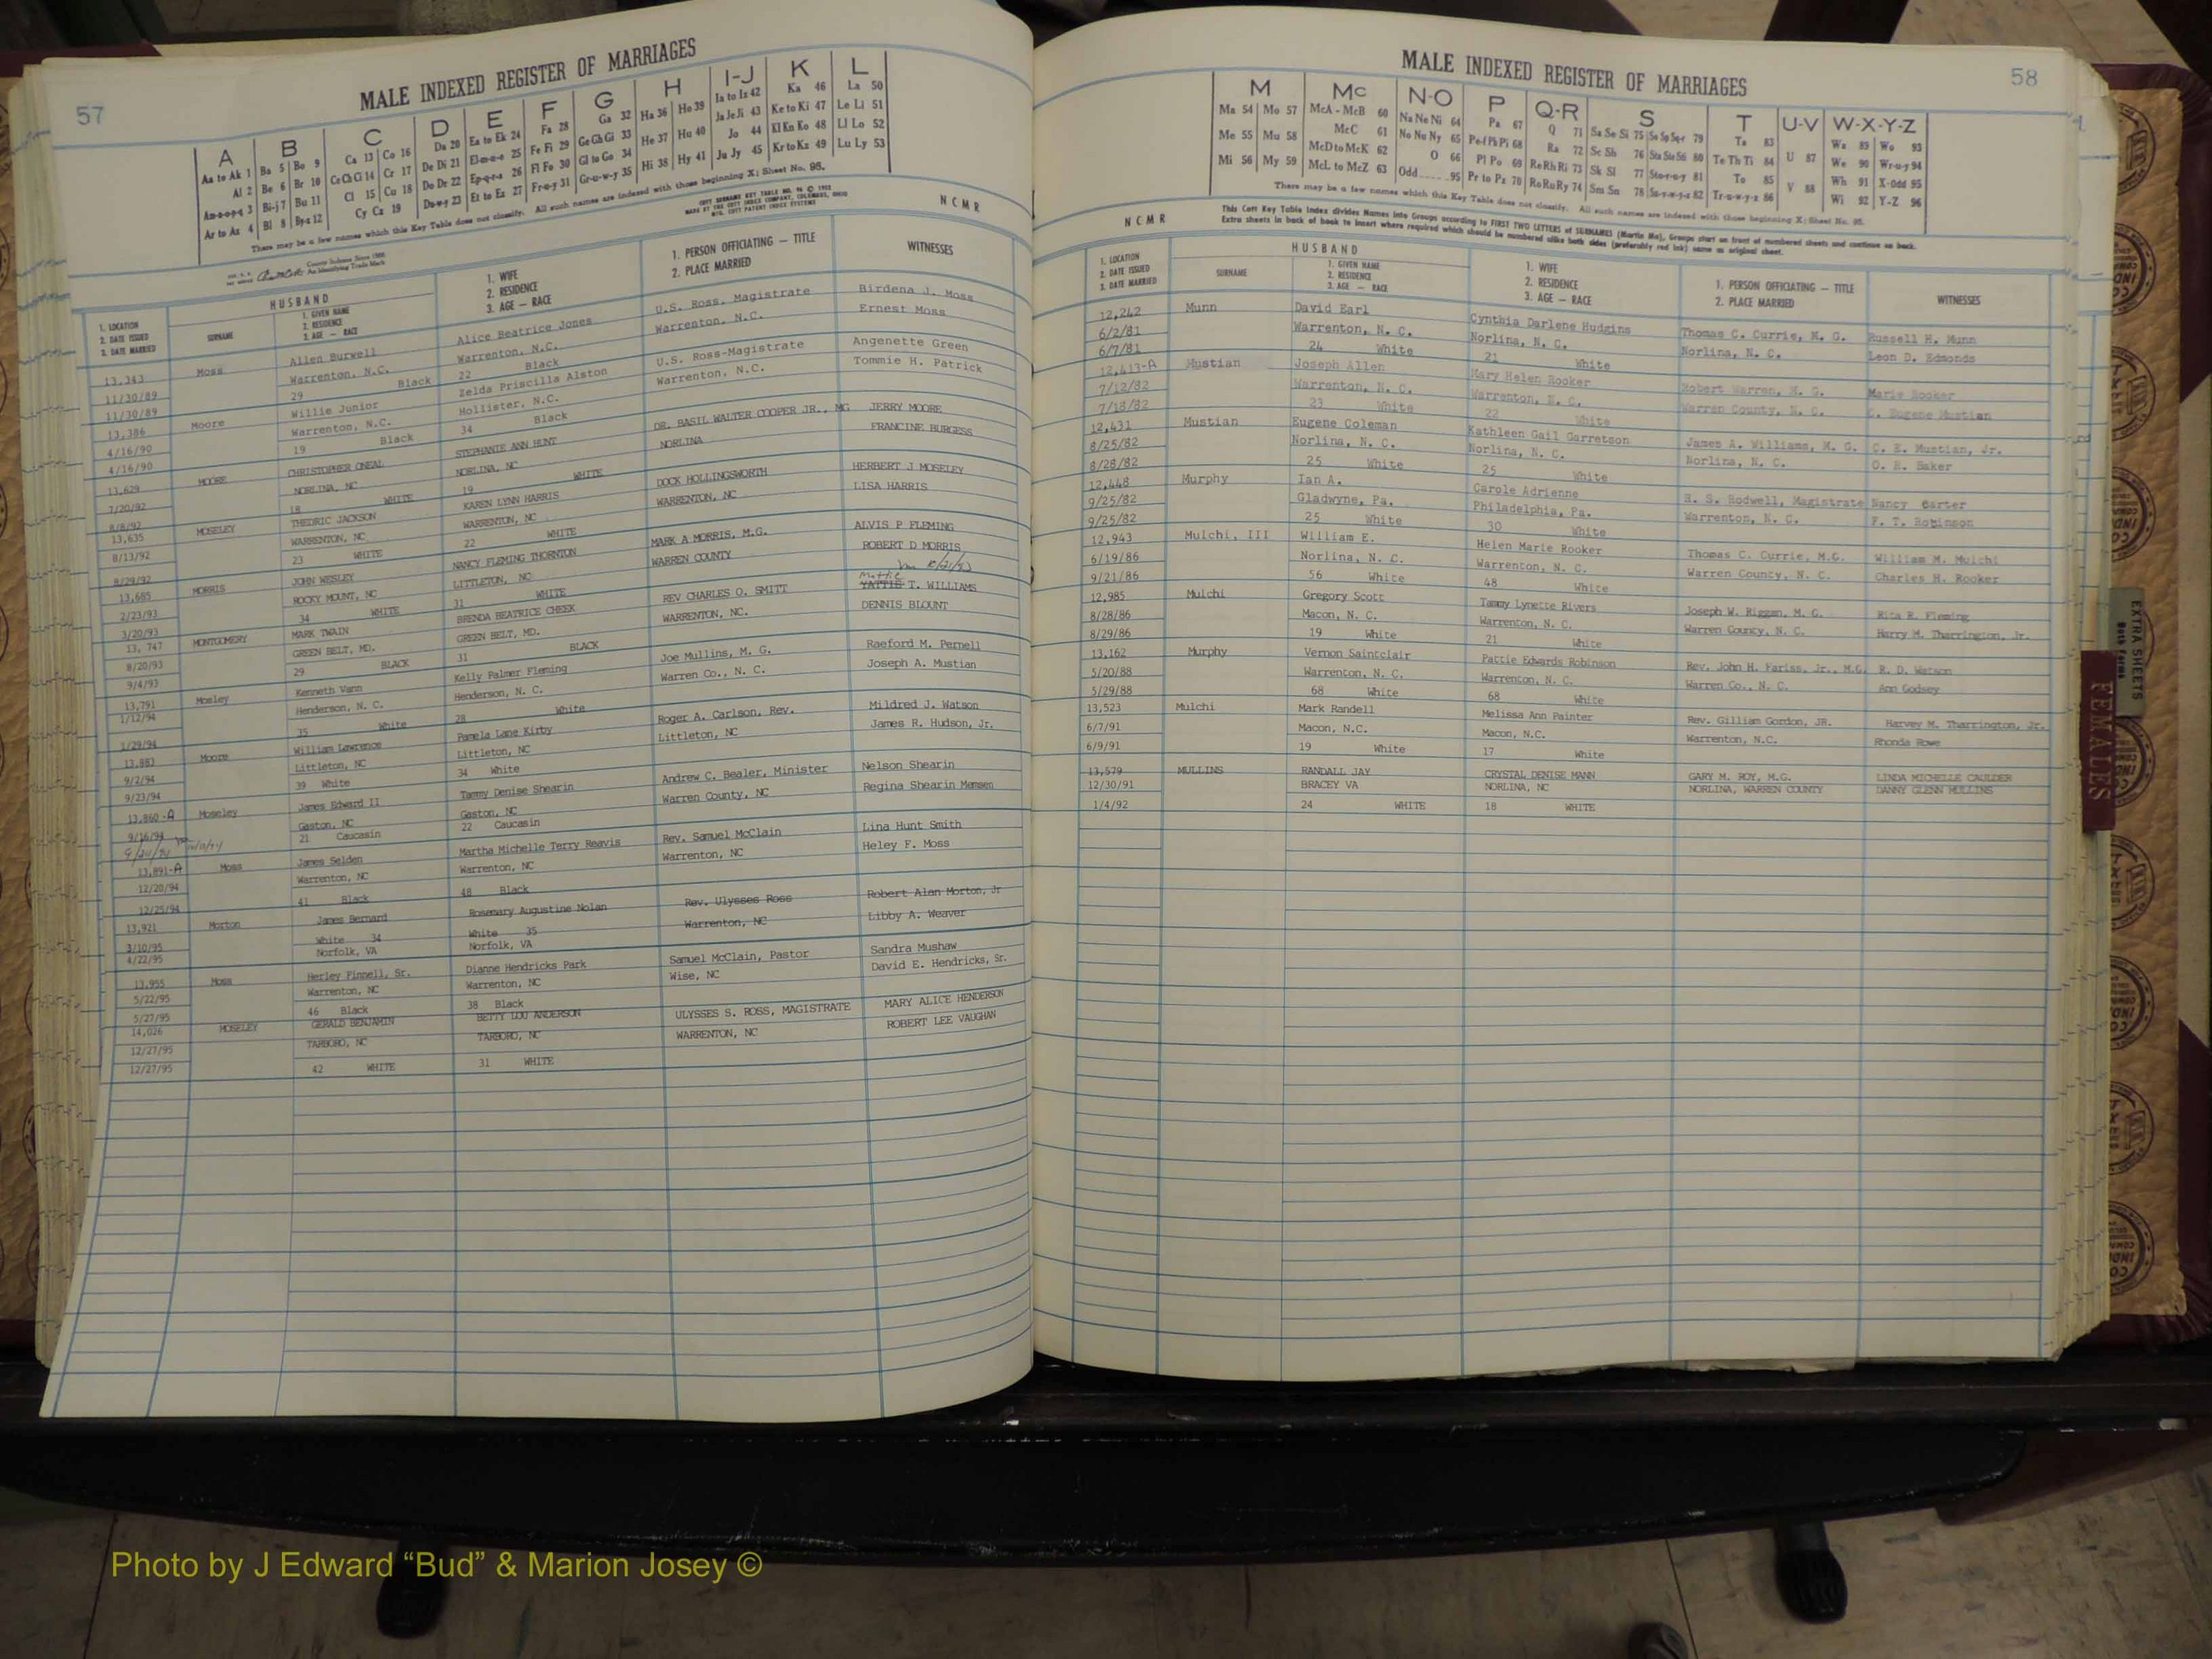 57
MALE INDEXED REGISTER OF MARRIAGES
A B C D E F G H I-J K L
Aa to Ak 1 Ba 5 Bo 9 Ca 13 Co 16 Da 20 Ea to Ek 24 Fa 28 Ga 32 Ha 36 Ho 39 Ia to Iz 42 Ka 46 La 50
Al 2 Be 6 Br 10 Ce Ch Ci 14 Cr 17 De Di 21 El-m-n-o 25 Fe Fi 29 Ge Gh Gi 33 He 37 Hu 40 Ja Je Ji 43 Ke to Ki 47 Le Li 51
Am-n-o-p-q 3 Bi-j 7 Bu 11 Cl 15 Cu 18 Do Dr 22 Ep-q-r-s 26 Fl Fo 30 Gl to Go 34 Hi 38 Hy 41 Jo 44 Kl Kn Ko 48 Ll Lo 52
Ar to Az 4 Bl 8 By-z 12 Cy Cz 19 Du-w-y 23 Et to Ez 27 Fr-u-y 31 Gr-u-w-y 35 Ju Jy 45 Kr to Kz 49 Lu Ly 53
There may be a few names which this Key Table does not classify. All such names are indexed with those beginning X; Sheet No. 95.
COTT SURNAME KEY TABLE NO. 96 © 1952
MADE AT THE COTT INDEX COMPANY, COLUMBUS, OHIO
MFG. COTT PATENT INDEX SYSTEMS
NCMR
County Indexes Since 1888
An Identifying Trade Mark
HUSBAND
1. LOCATION
2. DATE ISSUED
3. DATE MARRIED
SURNAME
1. GIVEN NAME
2. RESIDENCE
3. AGE — RACE
1. WIFE
2. RESIDENCE
3. AGE — RACE
1. PERSON OFFICIATING — TITLE
2. PLACE MARRIED
WITNESSES
13,343 Moss Allen Burwell Alice Beatrice Jones U.S. Ross, Magistrate Birdena J. Moss
11/30/89 Warrenton, N.C. Warrenton, N.C. Warrenton, N.C. Ernest Moss
11/30/89 29 Black 22 Black
13,386 Moore Willie Junior Zelda Priscilla Alston U.S. Ross-Magistrate Angenette Green
4/16/90 Warrenton, N.C. Hollister, N.C. Warrenton, N.C. Tommie H. Patrick
4/16/90 19 Black 34 Black
13,629 MOORE CHRISTOPHER ONEAL STEPHANIE ANN HUNT DR. BASIL WALTER COOPER JR., MG JERRY MOORE
7/20/92 NORLINA, NC NORLINA, NC NORLINA FRANCINE BURGESS
8/8/92 18 WHITE 19 WHITE
13,635 MOSELEY THEDRIC JACKSON KAREN LYNN HARRIS DOCK HOLLINGSWORTH HERBERT J MOSELEY
8/13/92 WARRENTON, NC WARRENTON, NC WARRENTON, NC LISA HARRIS
8/29/92 23 WHITE 22 WHITE
13,685 MORRIS JOHN WESLEY NANCY FLEMING THORNTON MARK A MORRIS, M.G. ALVIS P FLEMING
2/23/93 ROCKY MOUNT, NC LITTLETON, NC WARREN COUNTY ROBERT D MORRIS
3/20/93 34 WHITE 31 WHITE
13, 747 MONTGOMERY MARK TWAIN BRENDA BEATRICE CHEEK REV CHARLES O. SMITT Mattie YATTIE T. WILLIAMS
8/20/93 GREEN BELT, MD. GREEN BELT, MD. WARRENTON, NC. DENNIS BLOUNT
9/4/93 29 BLACK 31 BLACK
13,791 Mosley Kenneth Vann Kelly Palmer Fleming Joe Mullins, M. G. Raeford M. Pernell
1/12/94 Henderson, N. C. Henderson, N. C. Warren Co., N. C. Joseph A. Mustian
1/29/94 35 White 28 White
13,883 Moore William Lawrence Pamela Lane Kirby Roger A. Carlson, Rev. Mildred J. Watson
9/2/94 Littleton, NC Littleton, NC Littleton, NC James R. Hudson, Jr.
9/23/94 39 White 34 White
13,860-A Moseley James Edward II Tammy Denise Shearin Andrew C. Bealer, Minister Nelson Shearin
9/16/94 Gaston, NC Gaston, NC Warren County, NC Regina Shearin Memsen
9/24/94 21 Caucasin 22 Caucasin
13,891-A Moss James Selden Martha Michelle Terry Reavis Rev. Samuel McClain Lina Hunt Smith
12/20/94 Warrenton, NC Warrenton, NC Warrenton, NC Heley F. Moss
12/25/94 41 Black 48 Black
13,921 Morton James Bernard Rosemary Augustine Nolan Rev. Ulysses Ross Robert Alan Morton, Jr
3/10/95 White 34 White 35 Warrenton, NC Libby A. Weaver
4/22/95 Norfolk, VA Norfolk, VA
13,955 Moss Herley Pinnell, Sr. Dianne Hendricks Park Samuel McClain, Pastor Sandra Mushaw
5/22/95 Warrenton, NC Warrenton, NC Wise, NC David E. Hendricks, Sr.
5/27/95 46 Black 38 Black
14,026 MOSELEY GERALD BENJAMIN BETTY LOU ANDERSON ULYSSES S. ROSS, MAGISTRATE MARY ALICE HENDERSON
12/27/95 TARBORO, NC TARBORO, NC WARRENTON, NC ROBERT LEE VAUGHAN
12/27/95 42 WHITE 31 WHITE
58
MALE INDEXED REGISTER OF MARRIAGES
M Mc N-O P Q-R S T U-V W-X-Y-Z
Ma 54 Mo 57 McA - McB 60 Na Ne Ni 64 Pa 67 Q 71 Sa Se Si 75 So Sp Sq-r 79 Ta 83 U 87 Wa 89 Wo 93
Me 55 Mu 58 McC 61 No Nu Ny 65 Pe-f Ph Pi 68 Ra 72 Sc Sh 76 Sta Ste Sti 80 Te Th Ti 84 V 88 We 90 Wr-u-y 94
Mi 56 My 59 McD to McK 62 O 66 Pl Po 69 Re Rh Ri 73 Sk Sl 77 Sto-r-u-y 81 To 85 Wh 91 X-Odd 95
McL to McZ 63 Odd 95 Pr to Pz 70 Ro Ru Ry 74 Sm Sn 78 Su-v-w-y-z 82 Tr-u-w-y-z 86 Wi 92 Y-Z 96
There may be a few names which this Key Table does not classify. All such names are indexed with those beginning X; Sheet No. 95.
NCMR
This Cott Key Table Index divides Names into Groups according to FIRST TWO LETTERS of SURNAMES (Martin Ma), Groups start on front of numbered sheets and continue on back.
Extra sheets in back of book to insert where required which should be numbered alike both sides (preferably red ink) same as original sheet.
HUSBAND
1. LOCATION
2. DATE ISSUED
3. DATE MARRIED
SURNAME
1. GIVEN NAME
2. RESIDENCE
3. AGE — RACE
1. WIFE
2. RESIDENCE
3. AGE — RACE
1. PERSON OFFICIATING — TITLE
2. PLACE MARRIED
WITNESSES
12,242 Munn David Earl Cynthia Darlene Hudgins Thomas C. Currie, M. G. Russell H. Munn
6/2/81 Warrenton, N. C. Norlina, N. C. Norlina, N. C. Leon D. Edmonds
6/7/81 24 White 21 White
12,413-A Mustian Joseph Allen Mary Helen Rooker Robert Warren, M. G. Marie Rooker
7/12/82 Warrenton, N. C. Warrenton, N. C. Warren County, N. C. C. Eugene Mustian
7/18/82 23 White 22 White
12,431 Mustian Eugene Coleman Kathleen Gail Garretson James A. Williams, M. G. C. E. Mustian, Jr.
8/25/82 Norlina, N. C. Norlina, N. C. Norlina, N. C. O. R. Baker
8/28/82 25 White 25 White
12,448 Murphy Ian A. Carole Adrienne B. S. Rodwell, Magistrate Nancy Carter
9/25/82 Gladwyne, Pa. Philadelphia, Pa. Warrenton, N. C. F. T. Robinson
9/25/82 25 White 30 White
12,943 Mulchi, III William E. Helen Marie Rooker Thomas C. Currie, M.G. William M. Mulchi
6/19/86 Norlina, N. C. Warrenton, N. C. Warren County, N. C. Charles H. Rooker
9/21/86 56 White 48 White
12,985 Mulchi Gregory Scott Tammy Lynette Rivers Joseph W. Riggan, M. G. Rita R. Fleming
8/28/86 Macon, N. C. Warrenton, N. C. Warren County, N. C. Harry M. Tharrington, Jr.
8/29/86 19 White 21 White
13,162 Murphy Vernon Saintclair Pattie Edwards Robinson Rev. John H. Fariss, Jr., M.G. R. D. Watson
5/20/88 Warrenton, N. C. Warrenton, N. C. Warren Co., N. C. Ann Godsey
5/29/88 68 White 68 White
13,523 Mulchi Mark Randell Melissa Ann Painter Rev. Gilliam Gordon, JR. Harvey M. Tharrington, Jr.
6/7/91 Macon, N.C. Macon, N.C. Warrenton, N.C. Rhonda Rowe
6/9/91 19 White 17 White
13,579 MULLINS RANDALL JAY CRYSTAL DENISE MANN GARY M. ROY, M.G. LINDA MICHELLE CAULDER
12/30/91 BRACEY VA NORLINA, NC NORLINA, WARREN COUNTY DANNY GLENN MULLINS
1/4/92 24 WHITE 18 WHITE
EXTRA SHEETS
FEMALES
Photo by J Edward “Bud” & Marion Josey ©